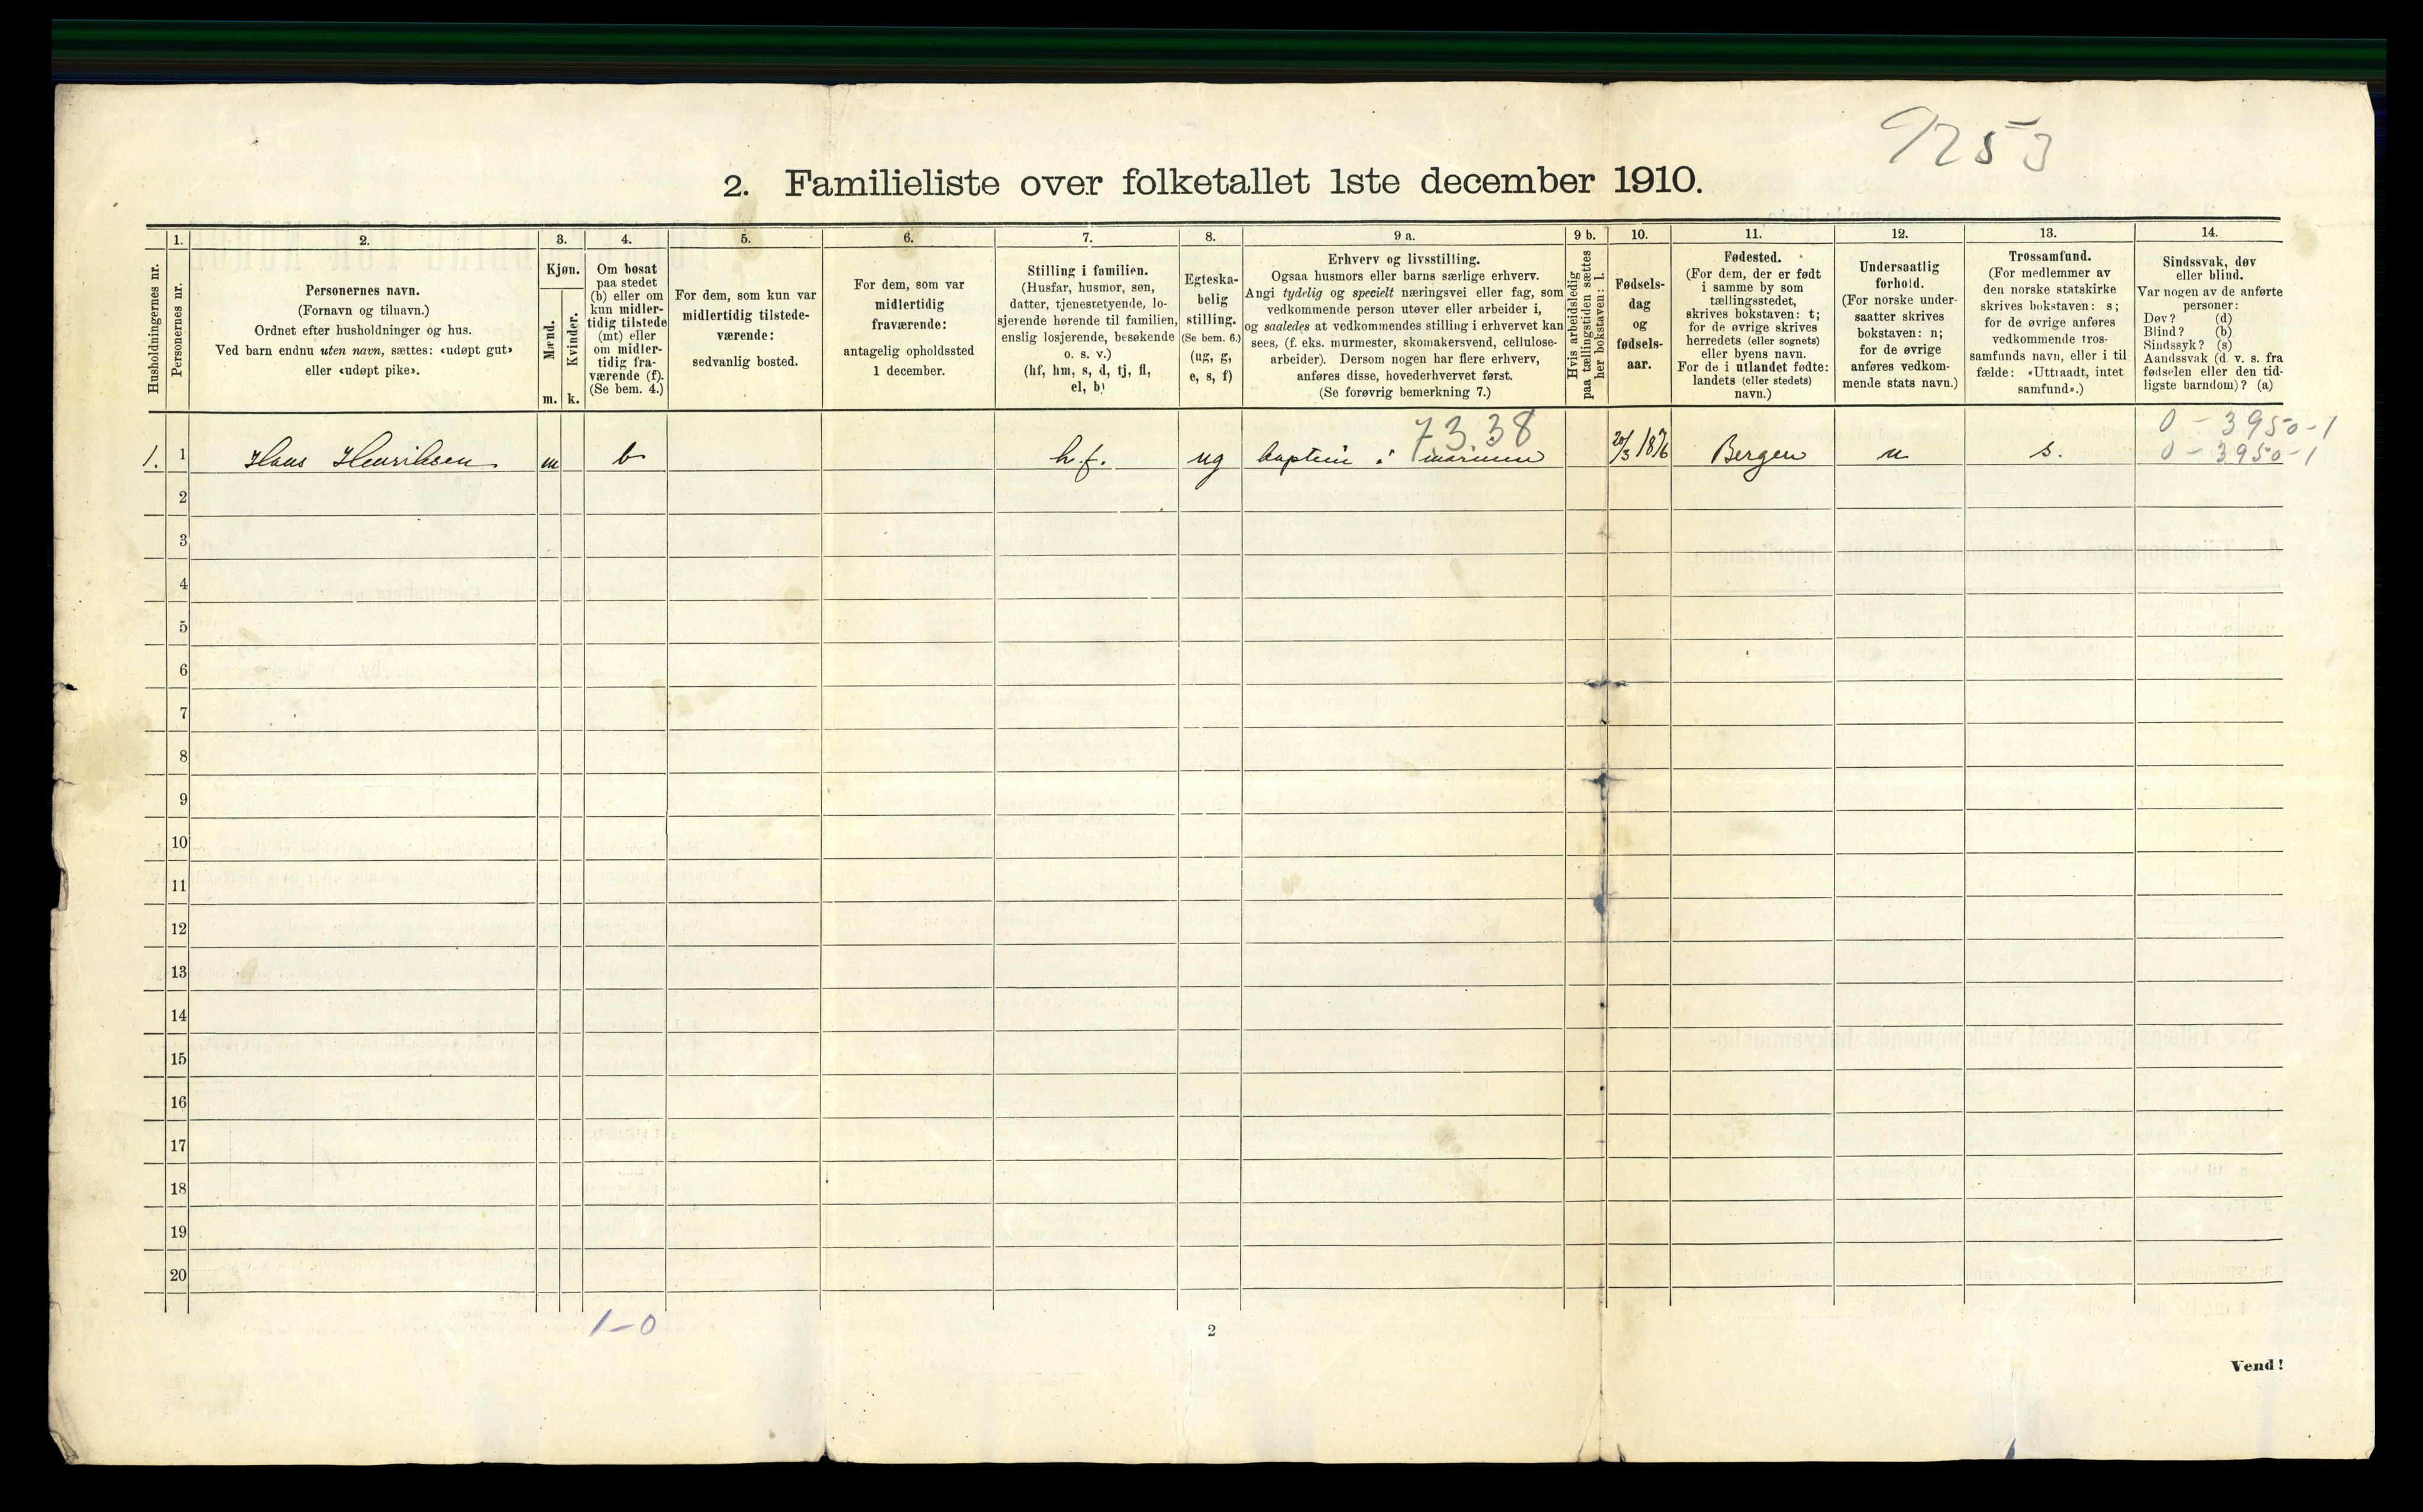 9253
2. Familieliste over folketallet 1ste december 1910.
Husholdningernes nr.
1.
Personernes nr.
2.
Personernes navn.
(Fornavn og tilnavn.)
Ordnet efter husholdninger og hus.
Ved barn endnu uten navn, sættes: «udøpt gut»
eller «udøpt pike».
3.
Kjøn.
Mænd.
Kvinder.
m. k.
4.
Om bosat
paa stedet
(b) eller om
kun midler-
tidig tilstede
(mt) eller
om midler-
tidig fra-
værende (f).
(Se bem. 4.)
5.
For dem, som kun var
midlertidig tilstede-
værende:
sedvanlig bosted.
6.
For dem, som var
midlertidig
fraværende:
antagelig opholdssted
1 december.
7.
Stilling i familien.
(Husfar, husmor, søn,
datter, tjenestetyende, lo-
sjerende hørende til familien,
enslig losjerende, besøkende
o. s. v.)
(hf, hm, s, d, tj, fl,
el, b)
8.
Egteska-
belig
stilling.
(Se bem. 6.)
(ug, g,
e, s, f)
9 a.
Erhverv og livsstilling.
Ogsaa husmors eller barns særlige erhverv.
Angi tydelig og specielt næringsvei eller fag, som
vedkommende person utøver eller arbeider i,
og saaledes at vedkommendes stilling i erhvervet kan
sees, (f. eks. murmester, skomakersvend, cellulose-
arbeider). Dersom nogen har flere erhverv,
anføres disse, hovederhvervet først.
(Se forøvrig bemerkning 7.)
9 b.
Hvis arbeidsledig
paa tællingstiden sættes
her bokstaven: l.
10.
Fødsels-
dag
og
fødsels-
aar.
11.
Fødested.
(For dem, der er født
i samme by som
tællingsstedet,
skrives bokstaven: t;
for de øvrige skrives
herredets (eller sognets)
eller byens navn.
For de i utlandet fødte:
landets (eller stedets)
navn.)
12.
Undersaatlig
forhold.
(For norske under-
saatter skrives
bokstaven: n;
for de øvrige
anføres vedkom-
mende stats navn.)
13.
Trossamfund.
(For medlemmer av
den norske statskirke
skrives bokstaven: s;
for de øvrige anføres
vedkommende tros-
samfunds navn, eller i til-
fælde: «Uttraadt, intet
samfund».)
14.
Sindssvak, døv
eller blind.
Var nogen av de anførte
personer:
Døv? (d)
Blind? (b)
Sindssyk? (s)
Aandssvak (d. v. s. fra
fødselen eller den tid-
ligste barndom)? (a)
73.38
0 - 3950-1
1. 1 Hans Henriksen m b h.f. ug kaptein i marinen 20/3 1876 Bergen n s. 0 - 3950-1
2
3
4
5
6
7
8
9
10
11
12
13
14
15
16
17
18
19
20
1-0
2
Vend!